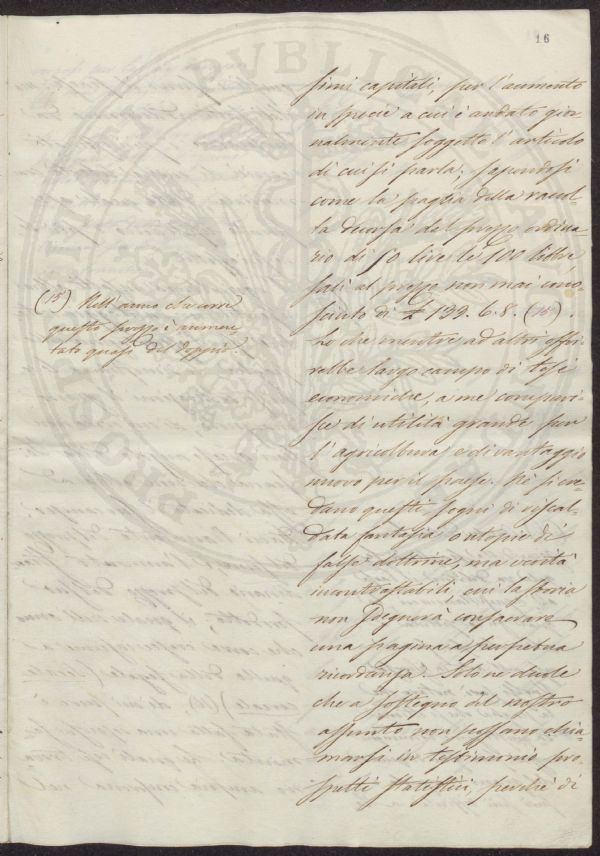 16
simi capitali per l'aumento
in specie a cui è andato gior-
nalmente soggetto l'articolo
di cui si parla, sapendosi
come la paglia della racol-
ta decorsa dal prezzo ordina-
rio di 50 lire le 100 libbre
salì al prezzo non mai cono-
sciuto di £ 199. 6. 8. (15).
Lo che mentre ad altri offri-
rebbe largo campo di tesi
economiche, a me comparis-
ce di utilità grande per
l'agricoltura, e di vantaggio
nuovo per il paese. Nè si cre-
dano questi sogni di riscal-
data fantasia o utopie di
false dottrine, ma verità
incontrastabili, cui la storia
non sdegnerà consacrare
una pagina a perpetua
ricordanza. Solo ne duole
che a sostegno del nostro
assunto non possano chia-
marsi in testimonio pro-
spetti statistici, perché di
(15) Nell'anno che corre
questo prezzo è aumen
tato quasi del doppio.
PROSPERITATI PUBLICAE